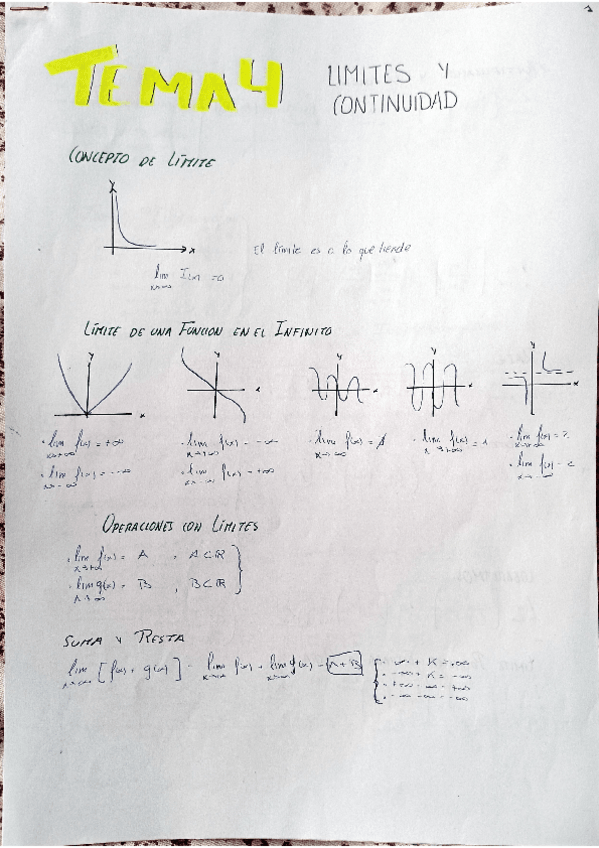 TEMA 4
LIMITES Y
CONTINUIDAD
CONCEPTO DE LÍMITE
Y
x
El límite es a lo que tiende
lim
LÍMITE DE UNA FUNCION EN EL INFINITO
Y Y Y Y Y
x x x x x
· lim f(x) = +∞ · lim f(x) = -∞ · lim f(x) = · lim f(x) = · lim f(x) =
x→+∞ x→+∞
· lim f(x) = · lim f(x) = +∞ · lim f(x) =
x→-∞ x→-∞ x→-∞
OPERACIONES CON LÍMITES
· lim f(x) = A , A⊂ℝ
x→+∞
· lim g(x) = B , B⊂ℝ
x→∞
SUMA Y RESTA
lim [f(x) + g(x)] = lim f(x) + lim g(x) = A+B
· ∞ + K = +∞
· -∞ + K = -∞